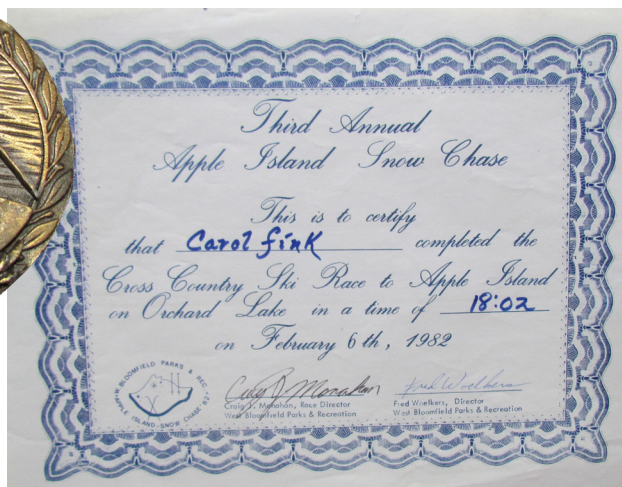 Third Annual
Apple Island Snow Chase
This is to certify
that Carol Fink completed the
Cross Country Ski Race to Apple Island
on Orchard Lake in a time of 18:02
on February 6th, 1982
W. BLOOMFIELD PARKS & REC.
APPLE ISLAND-SNOW CHASE '82
Craig J. Monahan
Fred Woelkers
Craig J. Monahan, Race Director
West Bloomfield Parks & Recreation
Fred Woelkers, Director
West Bloomfield Parks & Recreation